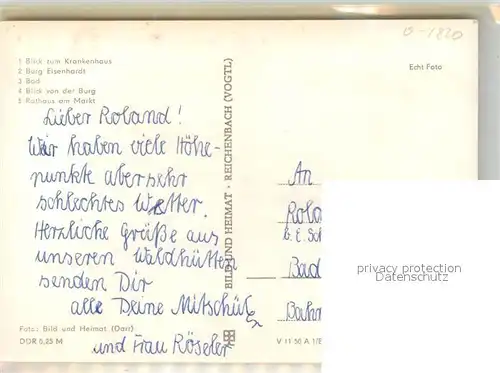 0-1820
1 Blick zum Krankenhaus
2 Burg Eisenhardt
3 Bad
4 Blick von der Burg
5 Rathaus am Markt
Echt Foto
Lieber Roland!
Wir haben viele Höhe-
punkte aber sehr
schlechtes Wetter.
Herzliche Grüße aus
unseren Waldhütten
senden Dir
alle Deine Mitschül
und Frau Röseler
BILD UND HEIMAT · REICHENBACH (VOGTL)
An
Rola
Bad
Bahn
privacy protection
Datenschutz
Foto: Bild und Heimat (Darr)
DDR 0,25 M
V 11 50 A 1/B